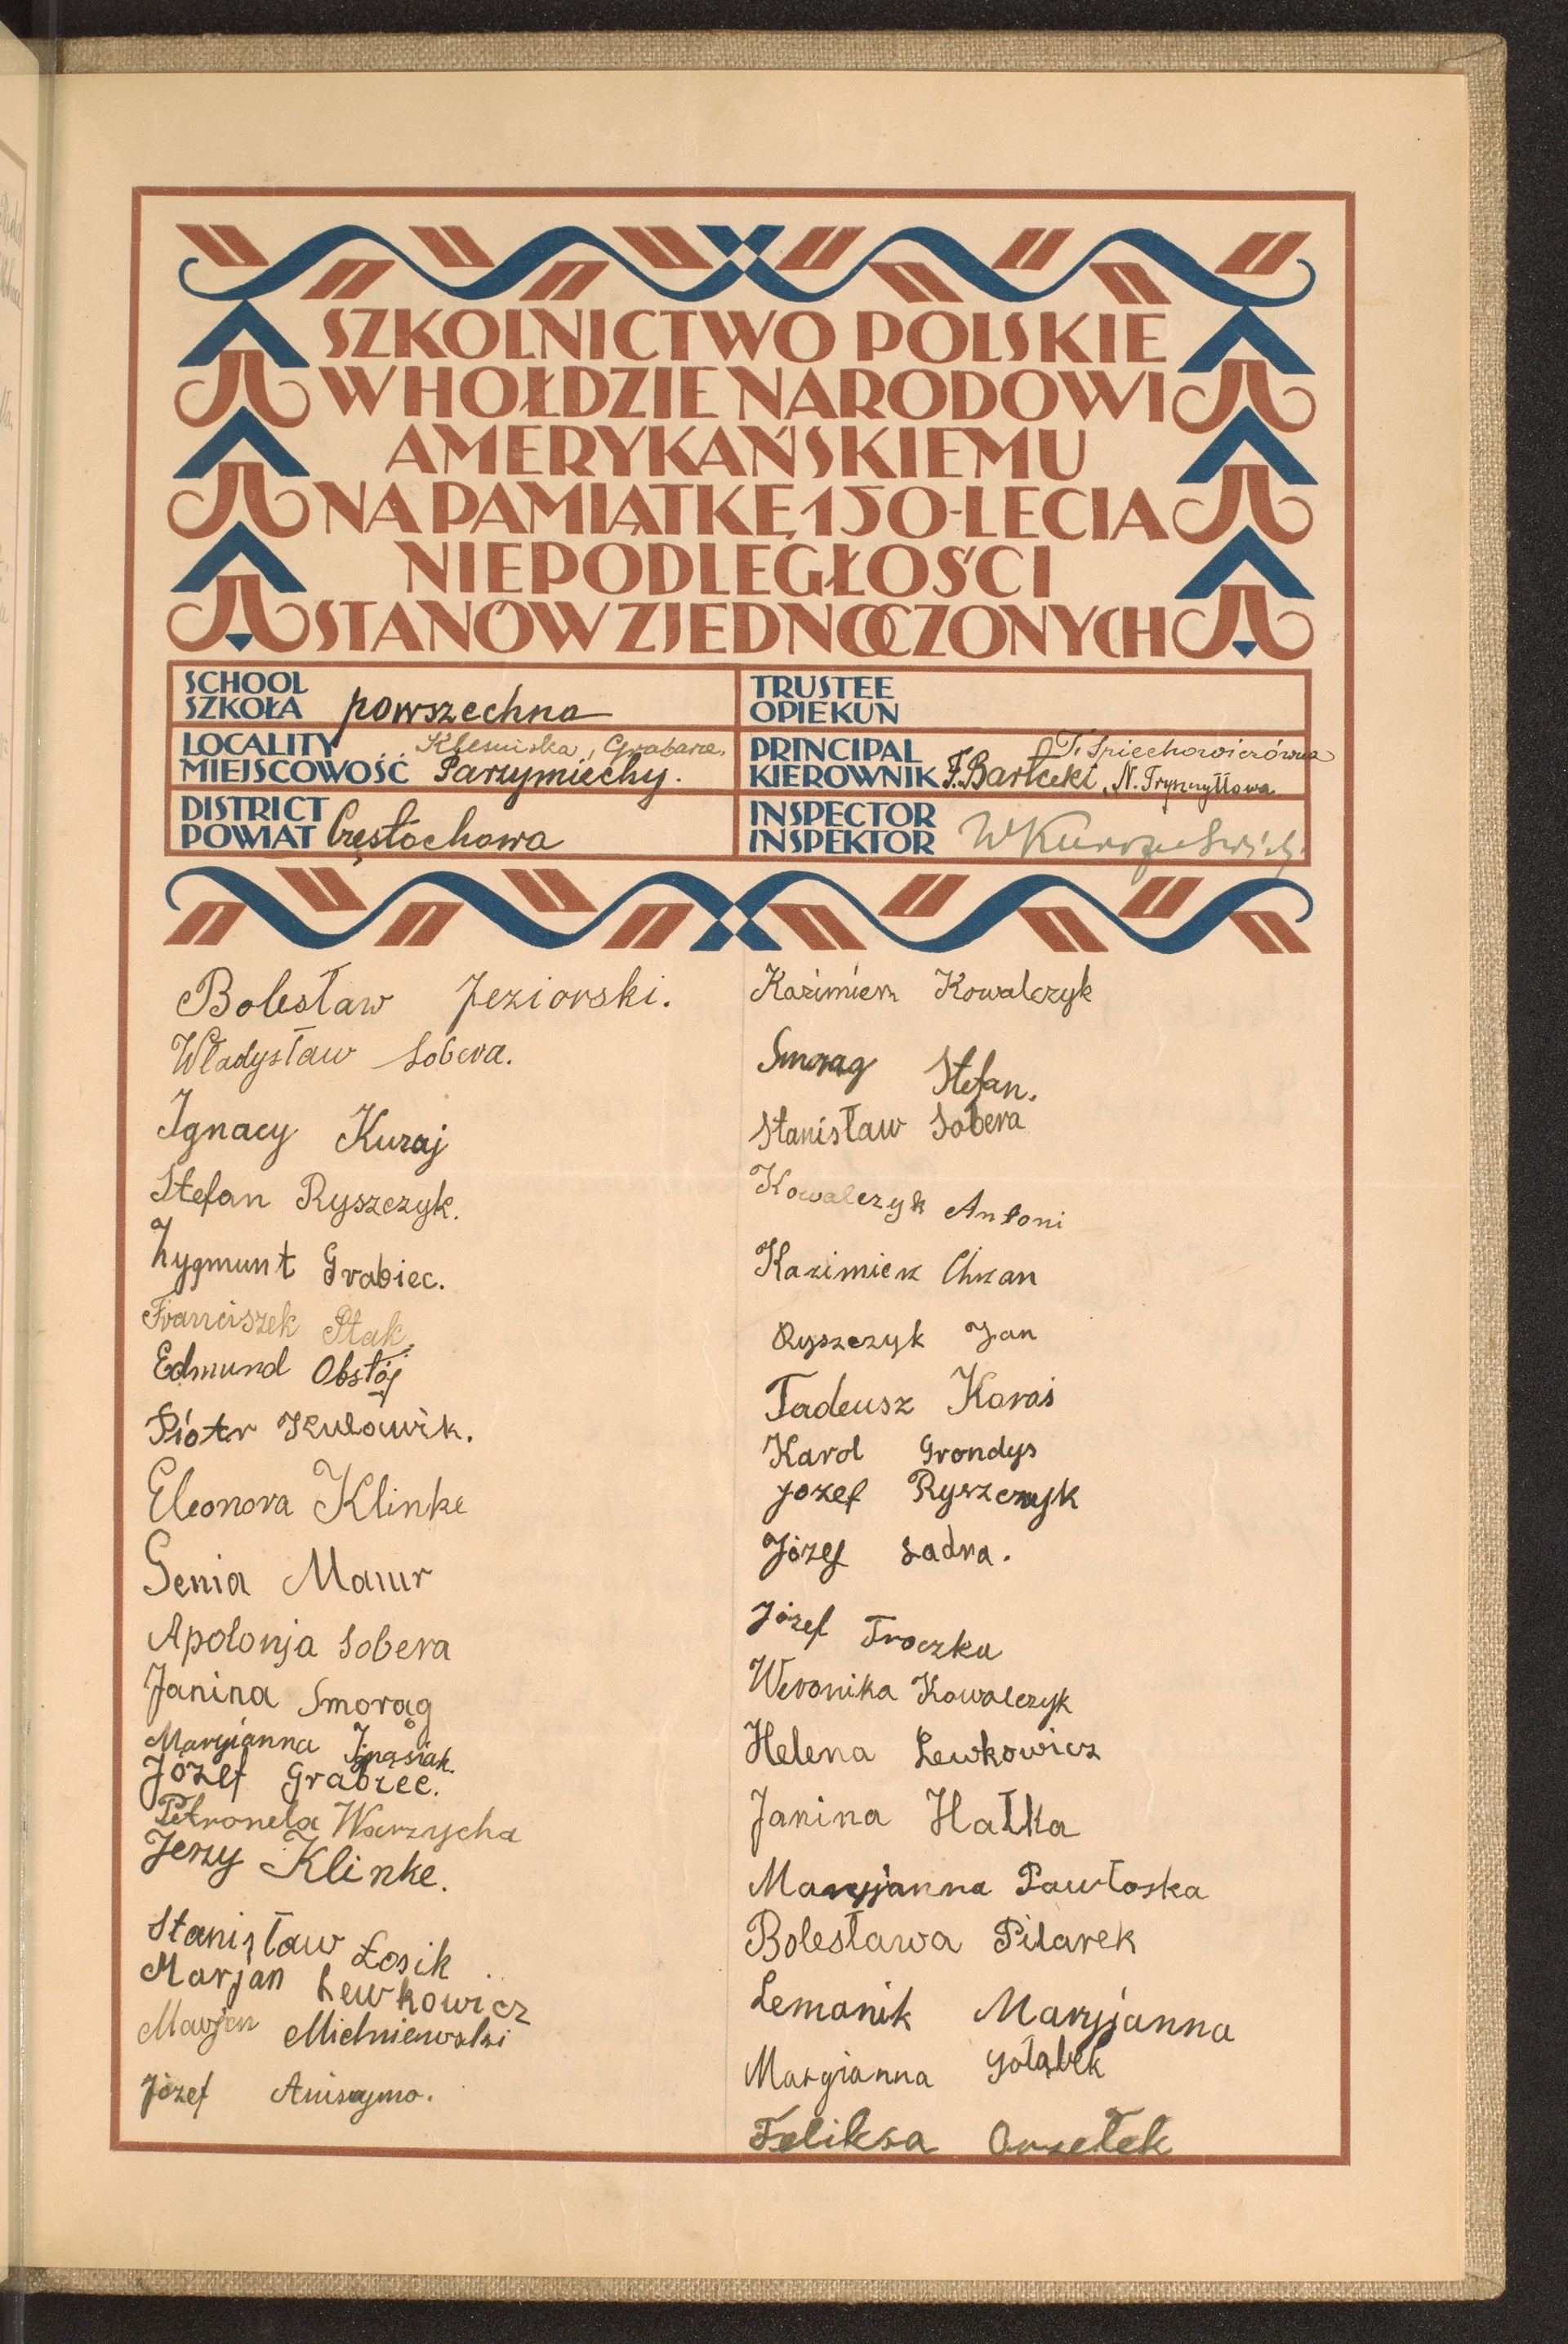 SZKOLNICTWO POLSKIE
W HOŁDZIE NARODOWI
AMERYKAŃSKIEMU
NA PAMIĄTKĘ 150-LECIA
NIEPODLEGŁOŚCI
STANÓW ZJEDNOCZONYCH
SCHOOL
SZKOŁA powszechna
LOCALITY
MIEJSCOWOŚĆ Parzymiechy.
DISTRICT
POWIAT Częstochowa
TRUSTEE
OPIEKUN
PRINCIPAL T. Śpiechowiczówna
KIEROWNIK F. Bartecki, N.
INSPECTOR
INSPEKTOR
Bolesław Jeziorski.
Władysław Sobera.
Ignacy Kuraj
Stefan Ryszczyk.
Zygmunt Grabiec.
Franciszek Ptak.
Edmund Obstój
Piotr Kulawik.
Eleonora Klinke
Genia Mazur
Apolonja Sobera
Janina Smorąg
Maryianna Ignasiak.
Józef Grabiec.
Petronela Warzycha
Jerzy Klinke.
Stanisław Łosik
Marjan Lewkowicz
Marjan Michniewski
Józef
Kazimierz Kowalczyk
Smorąg Stefan.
Stanisław Sobera
Kowalczyk Antoni
Kazimierz Chrzan
Ryszczyk Jan
Tadeusz Karaś
Karol Grondys
Józef Ryszczyk
Józef Sadra.
Józef Troczka
Weronika Kowalczyk
Helena Lewkowicz
Janina Hałka
Maryjanna Pawłoska
Bolesława Pilarek
Lemanik Maryjanna
Maryianna Gołąbek
Feliksa Orzełek